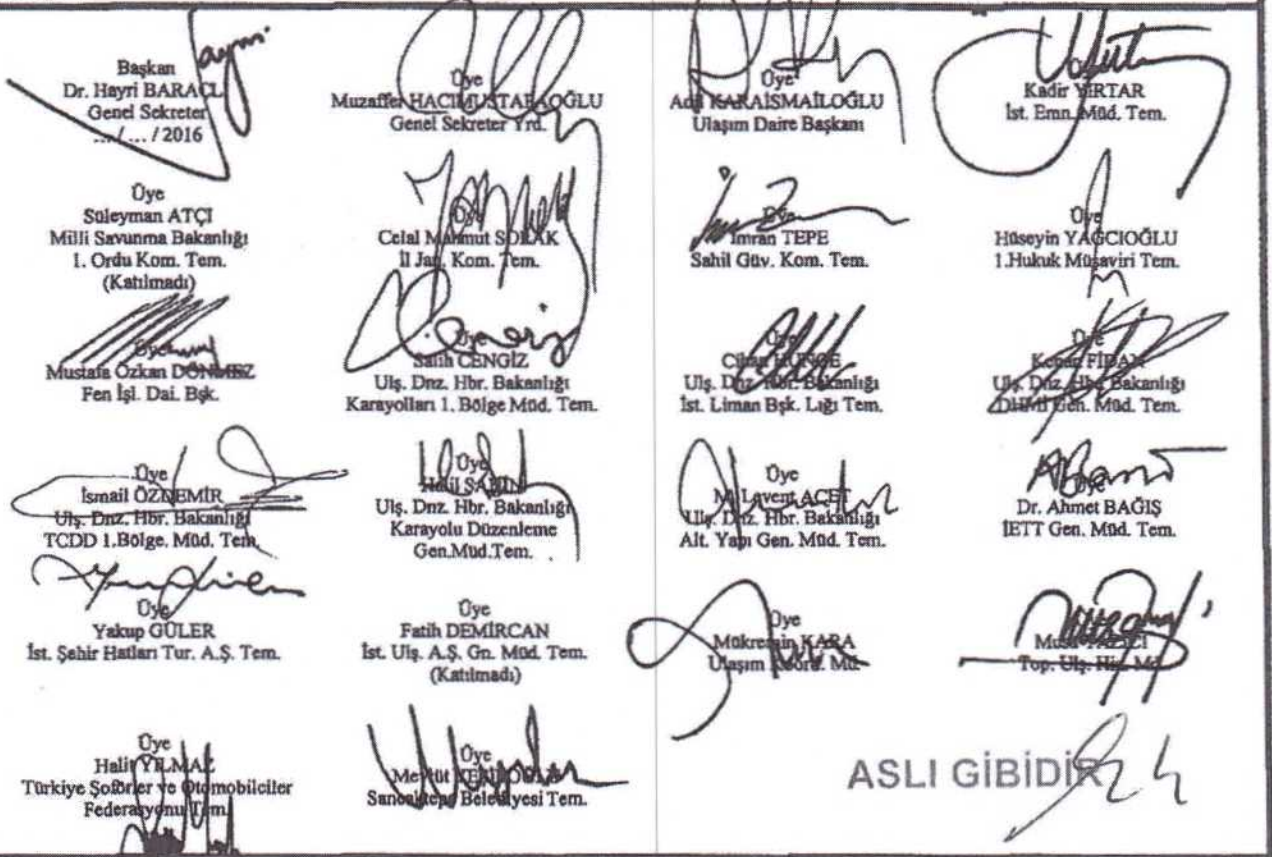 Başkan
Dr. Hayri BARAÇLI
Genel Sekreter
.../ ... / 2016
Üye
Muzaffer HACIMUSTAFAOĞLU
Genel Sekreter Yrd.
Üye
Adil KARAİSMAİLOĞLU
Ulaşım Daire Başkanı
Kadir YIRTAR
İst. Emn. Müd. Tem.
Üye
Süleyman ATÇI
Milli Savunma Bakanlığı
1. Ordu Kom. Tem.
(Katılmadı)
Celal Mahmut SORAK
İl Jan. Kom. Tem.
Üye
İmran TEPE
Sahil Güv. Kom. Tem.
Üye
Hüseyin YAĞCIOĞLU
1.Hukuk Müşaviri Tem.
Üye
Mustafa Özkan DÖNMEZ
Fen İşl. Dai. Bşk.
Üye
Salih CENGİZ
Ulş. Dnz. Hbr. Bakanlığı
Karayolları 1. Bölge Müd. Tem.
Üye
Cihan
Ulş. Dnz. Hbr. Bakanlığı
İst. Liman Bşk. Lığı Tem.
Üye
Kenan FİDAN
Ulş. Dnz. Hbr. Bakanlığı
DHMİ Gen. Müd. Tem.
Üye
İsmail ÖZDEMİR
Ulş. Dnz. Hbr. Bakanlığı
TCDD 1.Bölge. Müd. Tem.
Üye
Halil ŞAHİN
Ulş. Dnz. Hbr. Bakanlığı
Karayolu Düzenleme
Gen.Müd.Tem.
Üye
M. Levent ACET
Ulş. Dnz. Hbr. Bakanlığı
Alt. Yapı Gen. Müd. Tem.
Üye
Dr. Ahmet BAĞIŞ
İETT Gen. Müd. Tem.
Üye
Yakup GÜLER
İst. Şehir Hatları Tur. A.Ş. Tem.
Üye
Fatih DEMİRCAN
İst. Ulş. A.Ş. Gn. Müd. Tem.
(Katılmadı)
Üye
Mükremin KARA
Ulaşım Koord. Md.
Musa YAZICI
Top. Ulş. Hiz. Md.
Üye
Halit YILMAZ
Türkiye Şoförler ve Otomobilciler
Federasyonu Tem.
Üye
Mevlüt
Sancaktepe Belediyesi Tem.
ASLI GİBİDİR